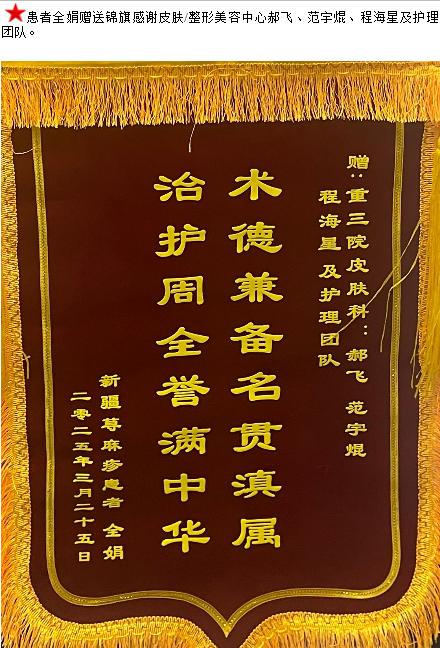 患者全娟赠送锦旗感谢皮肤/整形美容中心郝飞、范宇焜、程海星及护理
团队。
赠：重三院皮肤科：郝飞 范宇焜
程海星及护理团队
术德兼备名贯滇属
治护周全誉满中华
新疆荨麻疹患者 全娟
二零二五年三月二十五日